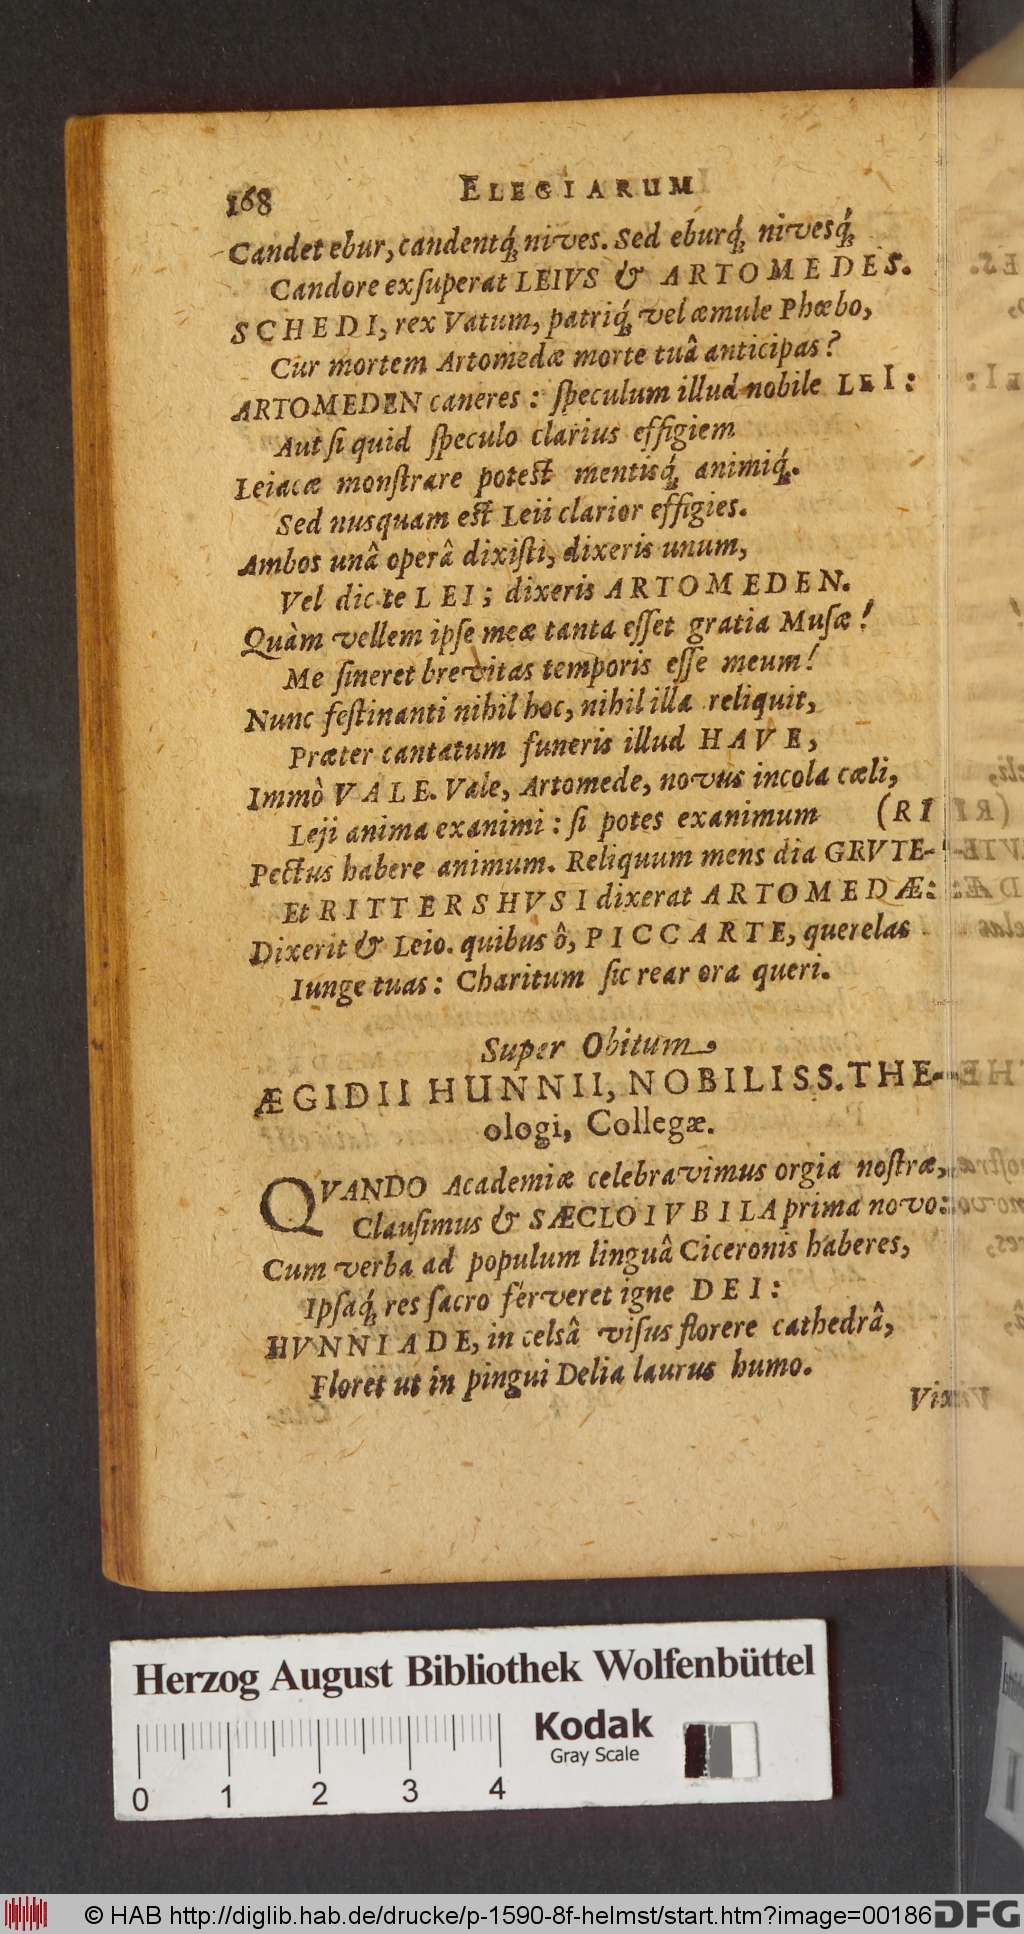 168 ELEGIARUM
Candet ebur, candentq́; nives. Sed eburq́; nivesq́;
Candore exſuperat LEIVS & ARTOMEDES.
SCHEDI, rex Vatum, patriq́; vel æmule Phœbo,
Cur mortem Artomedæ morte tuâ anticipas?
ARTOMEDEN caneres: ſpeculum illud nobile LEI:
Aut ſi quid ſpeculo clarius effigiem
Leiacæ monſtrare poteſt mentisq́; animiq́;.
Sed nusquam eſt Leii clarior effigies.
Ambos unâ operâ dixiſti, dixeris unum,
Vel dic te LEI; dixeris ARTOMEDEN.
Quàm vellem ipſe meæ tanta eſſet gratia Muſæ!
Me ſineret brevitas temporis eſſe meum!
Nunc feſtinanti nihil hoc, nihil illa reliquit,
Præter cantatum funeris illud HAVE,
Immò VALE. Vale, Artomede, novus incola cæli,
Leji anima exanimi: ſi potes exanimum (RI
Pectus habere animum. Reliquum mens dia GRVTE-
Et RITTERSHVSI dixerat ARTOMEDÆ:
Dixerit & Leio. quibus ô, PICCARTE, querelas
Iunge tuas: Charitum ſic rear ora queri.
Super Obitum
ÆGIDII HUNNII, NOBILISS. THE-
ologi, Collegæ.
QVANDO Academiæ celebravimus orgia noſtræ,
Clauſimus & SÆCLO IVBILA prima novo:
Cum verba ad populum linguâ Ciceronis haberes,
Ipſaq́; res ſacro ferveret igne DEI:
HVNNIADE, in celsâ viſus florere cathedrâ,
Floret ut in pingui Delia laurus humo.
Vix
Herzog August Bibliothek Wolfenbüttel
Kodak
Gray Scale
0 1 2 3 4
© HAB http://diglib.hab.de/drucke/p-1590-8f-helmst/start.htm?image=00186
DFG